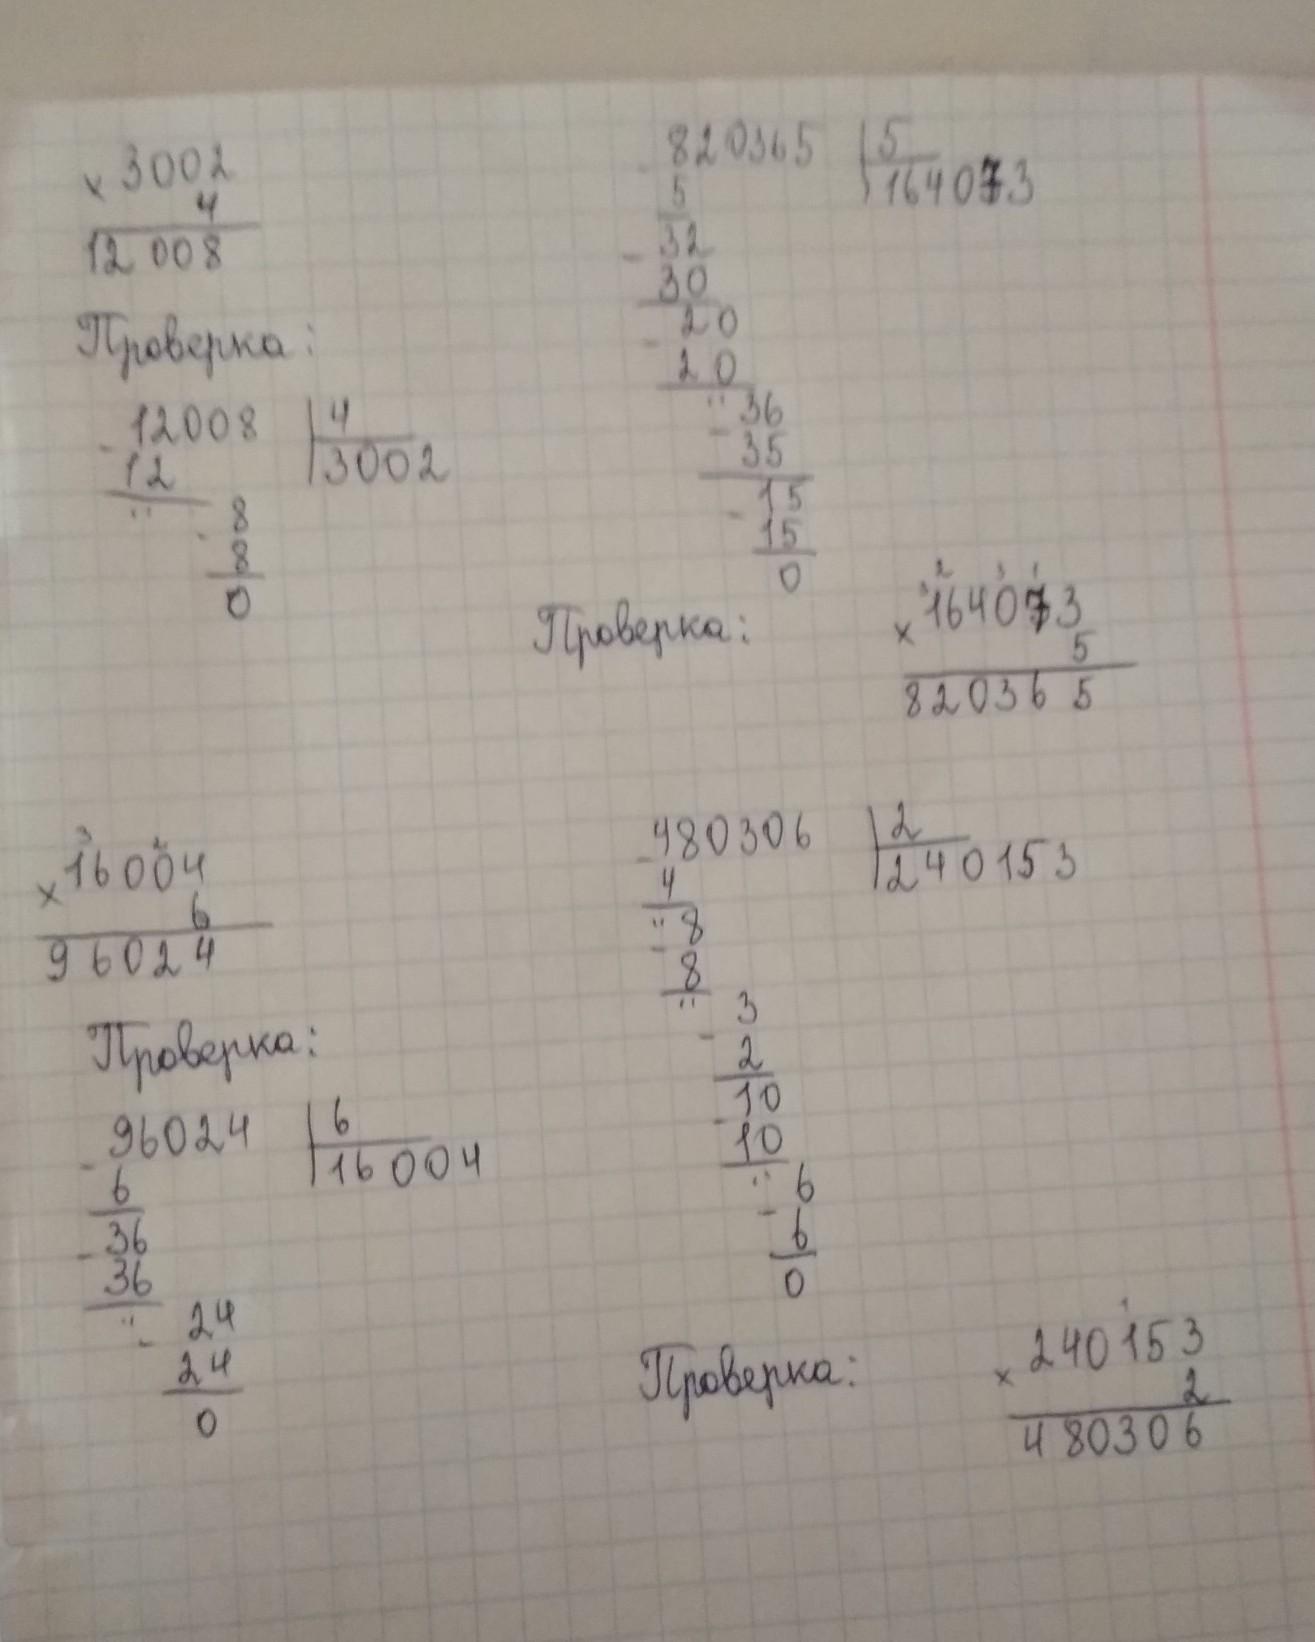 × 3002
4
12008
Проверка:
- 12008 | 4
12 | 3002
- 8
8
0
- 820365 | 5
5 | 164073
- 32
30
- 20
20
- 36
35
- 15
15
0
Проверка:
× 164073
5
820365
3 2
× 16004
6
96024
Проверка:
- 96024 | 6
6 | 16004
- 36
36
- 24
24
0
- 480306 | 2
4 | 240153
- 8
8
- 3
2
- 10
10
- 6
6
0
Проверка:
1
× 240153
2
480306